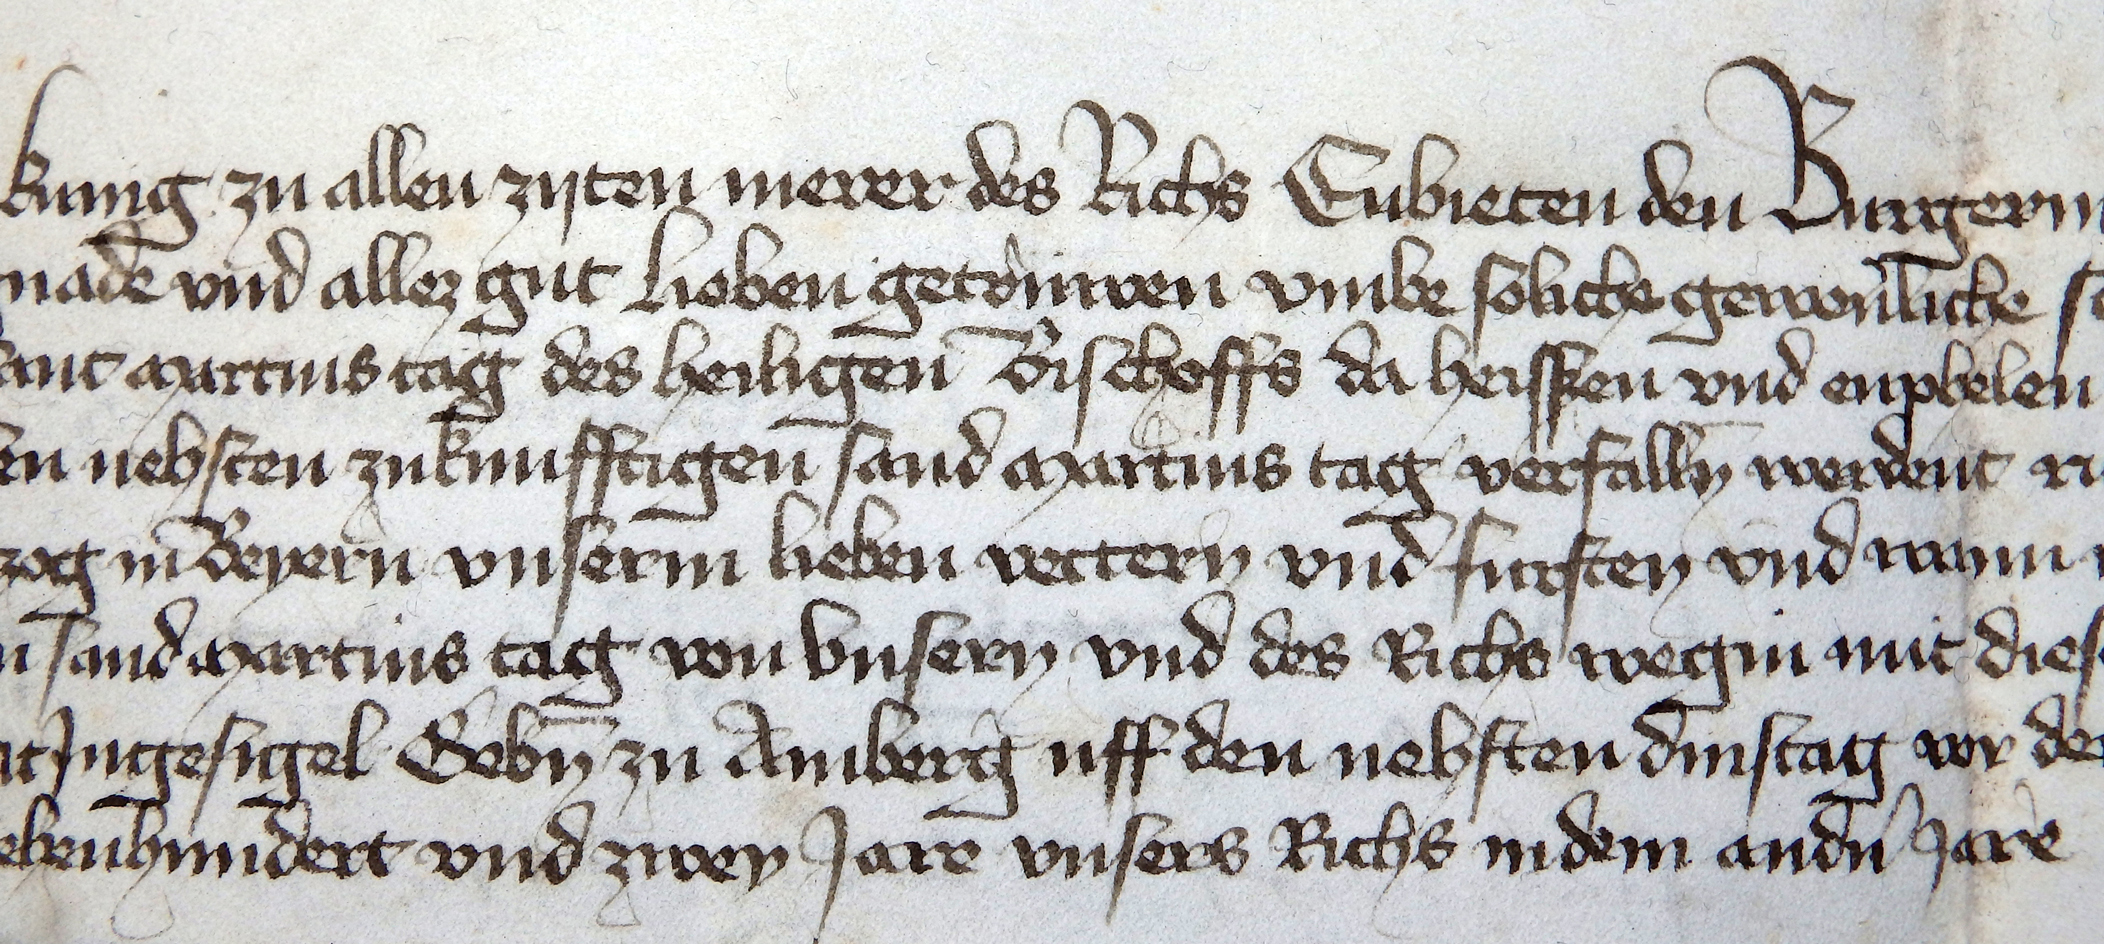 kunig zu allen zijten merer des Richs Enbieten den Burgerm
nade vnd allez gut Lieben getruwen vmbe soliche gewonliche st
sant martins tag des heiligen Bischoffs da heissen vnd enphelen
en nehsten zukunfftigen sand martins tag verfallen werdent
zog in Beyern vnserm lieben vettern vnd fursten vnd wann
n sand martins tag von vnsern vnd des Richs wegin mit dies
Ingesigel Gebn zu Amberg uff den nehsten dinstag vor de
ebenhundert vnd zwey Jare vnsers Richs in dem andn Jare